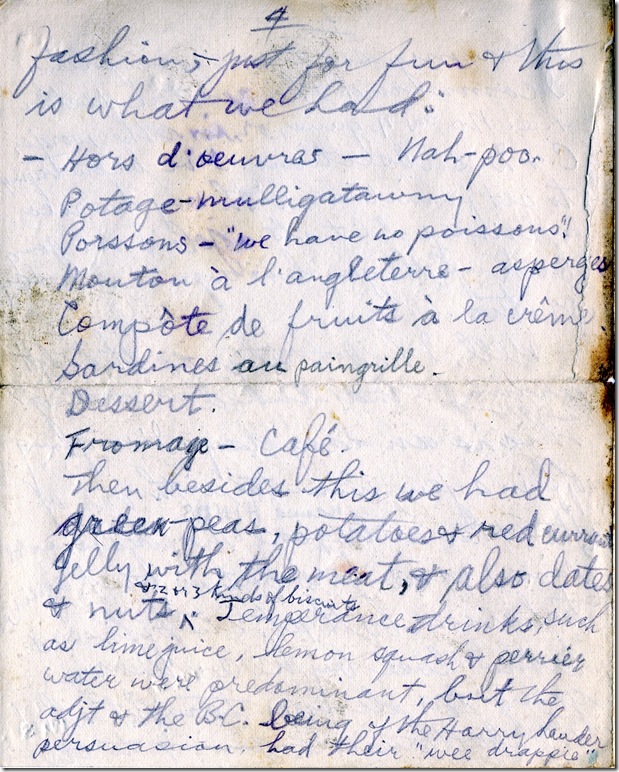 4
fashion, - just for fun & this
is what we had:
- Hors d'oeuvras - Nah-poo.
Potage - mulligatawny
Porssons - "we have no poissons"!
Mouton à l'angleterre - asperges
Compôte de fruits à la crême.
Sardines au paingrille.
Dessert.
Fromage - Café.
Then besides this we had
green-peas, potatoes & red currant
jelly with the meat, & also dates
& 2 or 3 kinds of biscuits
& nuts. Temperance drinks, such
as lime juice, lemon squash & perrier
water were predominant, but the
adjt & the B.C. being of the Harry Lauder
persuasion, had their "wee drappie"